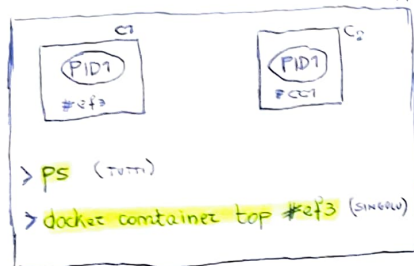 C1 C2
PID1 PID1
#ef3 #CC1
> ps (TUTTI)
> docker container top #ef3 (SINGOLO)